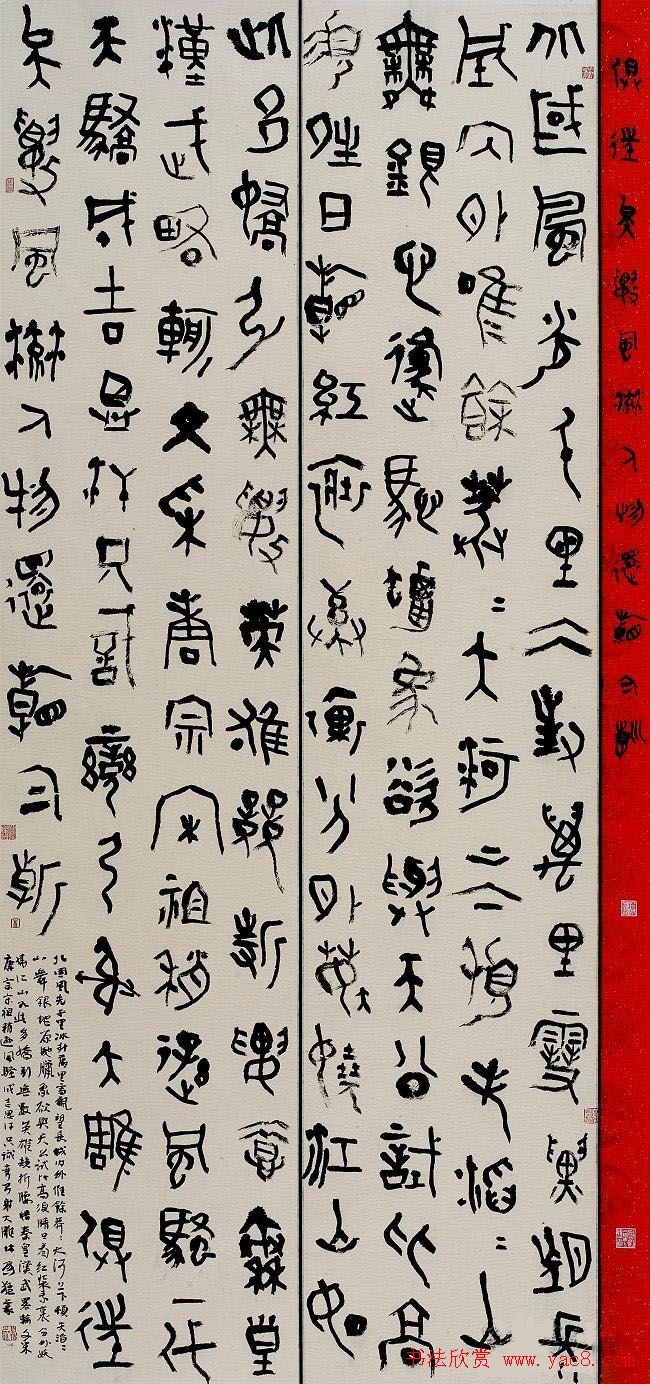 俱往矣數風流人物還看今朝
北國風光千里冰封萬里雪飄望長
城內外唯餘莽〻大河上下頓失滔〻山
舞銀蛇原馳蠟象欲與天公試比高
須晴日看紅裝素裹分外妖嬈江山如
此多嬌引無數英雄競折腰惜秦皇
漢武略輸文采唐宗宋祖稍遜風騷一代
天驕成吉思汗只識彎弓射大雕俱往
矣數風流人物還看今朝
北國風光千里冰封萬里雪飄望長城內外惟餘莽〻大河上下頓失滔〻
山舞銀蛇原馳臘象欲與天公試比高須晴日看紅裝素裹分外妖
嬈江山如此多嬌引無數英雄競折腰惜秦皇漢武略輸文采
唐宗宋祖稍遜風騷成吉思汗只識彎弓射大雕
书法欣赏 www.yac8.com